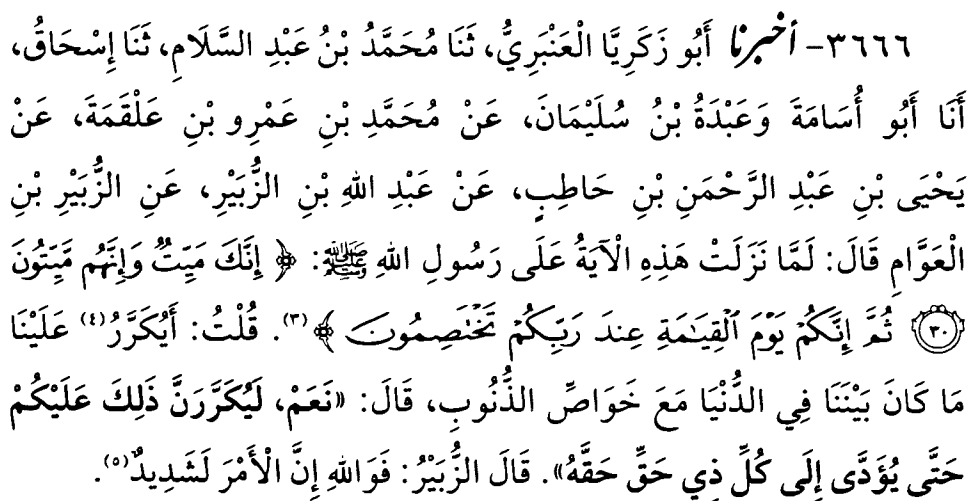 ٣٦٦٦- أخبرنا أَبُو زَكَرِيَّا الْعَنْبَرِيُّ، ثَنَا مُحَمَّدُ بْنُ عَبْدِ السَّلَامِ، ثَنَا إِسْحَاقُ،
أَنَا أَبُو أُسَامَةَ وَعَبْدَةُ بْنُ سُلَيْمَانَ، عَنْ مُحَمَّدِ بْنِ عَمْرِو بْنِ عَلْقَمَةَ، عَنْ
يَحْيَى بْنِ عَبْدِ الرَّحْمَنِ بْنِ حَاطِبٍ، عَنْ عَبْدِ اللهِ بْنِ الزُّبَيْرِ، عَنِ الزُّبَيْرِ بْنِ
الْعَوَّامِ قَالَ: لَمَّا نَزَلَتْ هَذِهِ الْآيَةُ عَلَى رَسُولِ اللهِ ﷺ: ﴿ إِنَّكَ مَيِّتٌ وَإِنَّهُم مَّيِّتُونَ
٣٠ ثُمَّ إِنَّكُمْ يَوْمَ ٱلْقِيَٰمَةِ عِندَ رَبِّكُمْ تَخْتَصِمُونَ ﴾(٣). قُلْتُ: أَيُكَرَّرُ(٤) عَلَيْنَا
مَا كَانَ بَيْنَنَا فِي الدُّنْيَا مَعَ خَوَاصِّ الذُّنُوبِ، قَالَ: «نَعَمْ، لَيُكَرَّرَنَّ ذَلِكَ عَلَيْكُمْ
حَتَّى يُؤَدَّى إِلَى كُلِّ ذِي حَقٍّ حَقَّهُ». قَالَ الزُّبَيْرُ: فَوَاللهِ إِنَّ الْأَمْرَ لَشَدِيدٌ(٥).